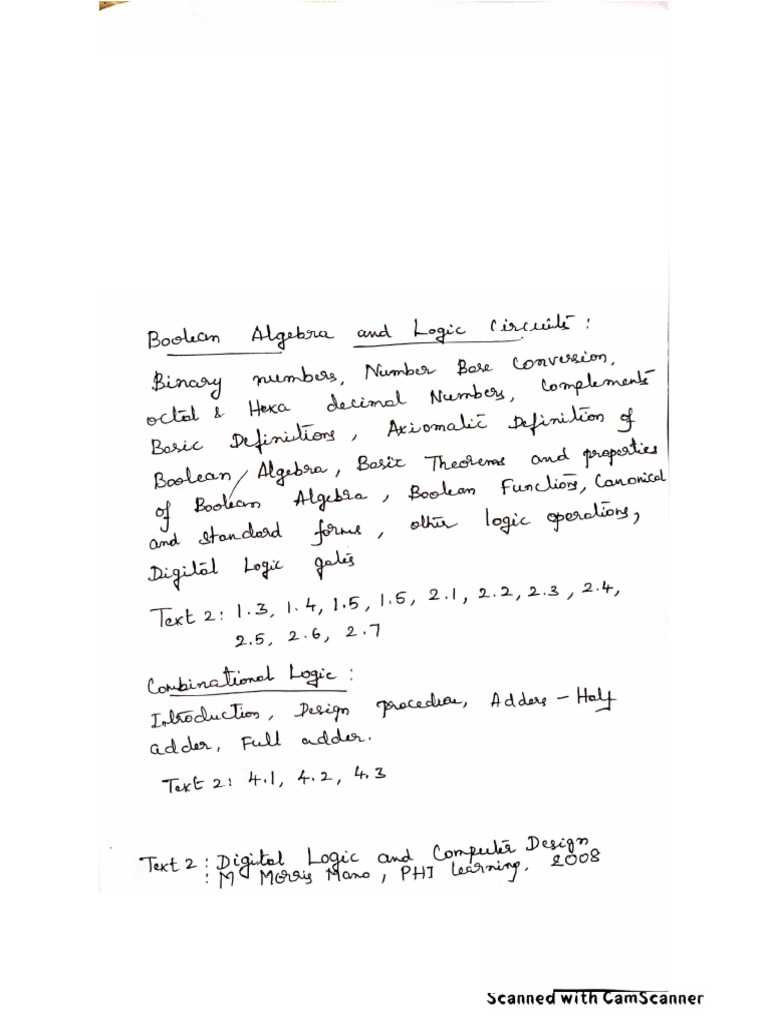 Boolean Algebra and Logic Circuits :
Binary numbers, Number Base Conversion,
octal & Hexa decimal Numbers, Complements
Basic Definitions, Axiomatic Definition of
Boolean Algebra, Basic Theorems and properties
of Boolean Algebra, Boolean Functions, Canonical
and standard forms, other logic operations,
Digital Logic gates
Text 2: 1.3, 1.4, 1.5, 1.5, 2.1, 2.2, 2.3, 2.4,
2.5, 2.6, 2.7
Combinational Logic :
Introduction, Design procedure, Adders - Half
adder, Full adder.
Text 2: 4.1, 4.2, 4.3
Text 2 : Digital Logic and Computer Design
: M Morris Mano, PHI Learning, 2008
Scanned with CamScanner